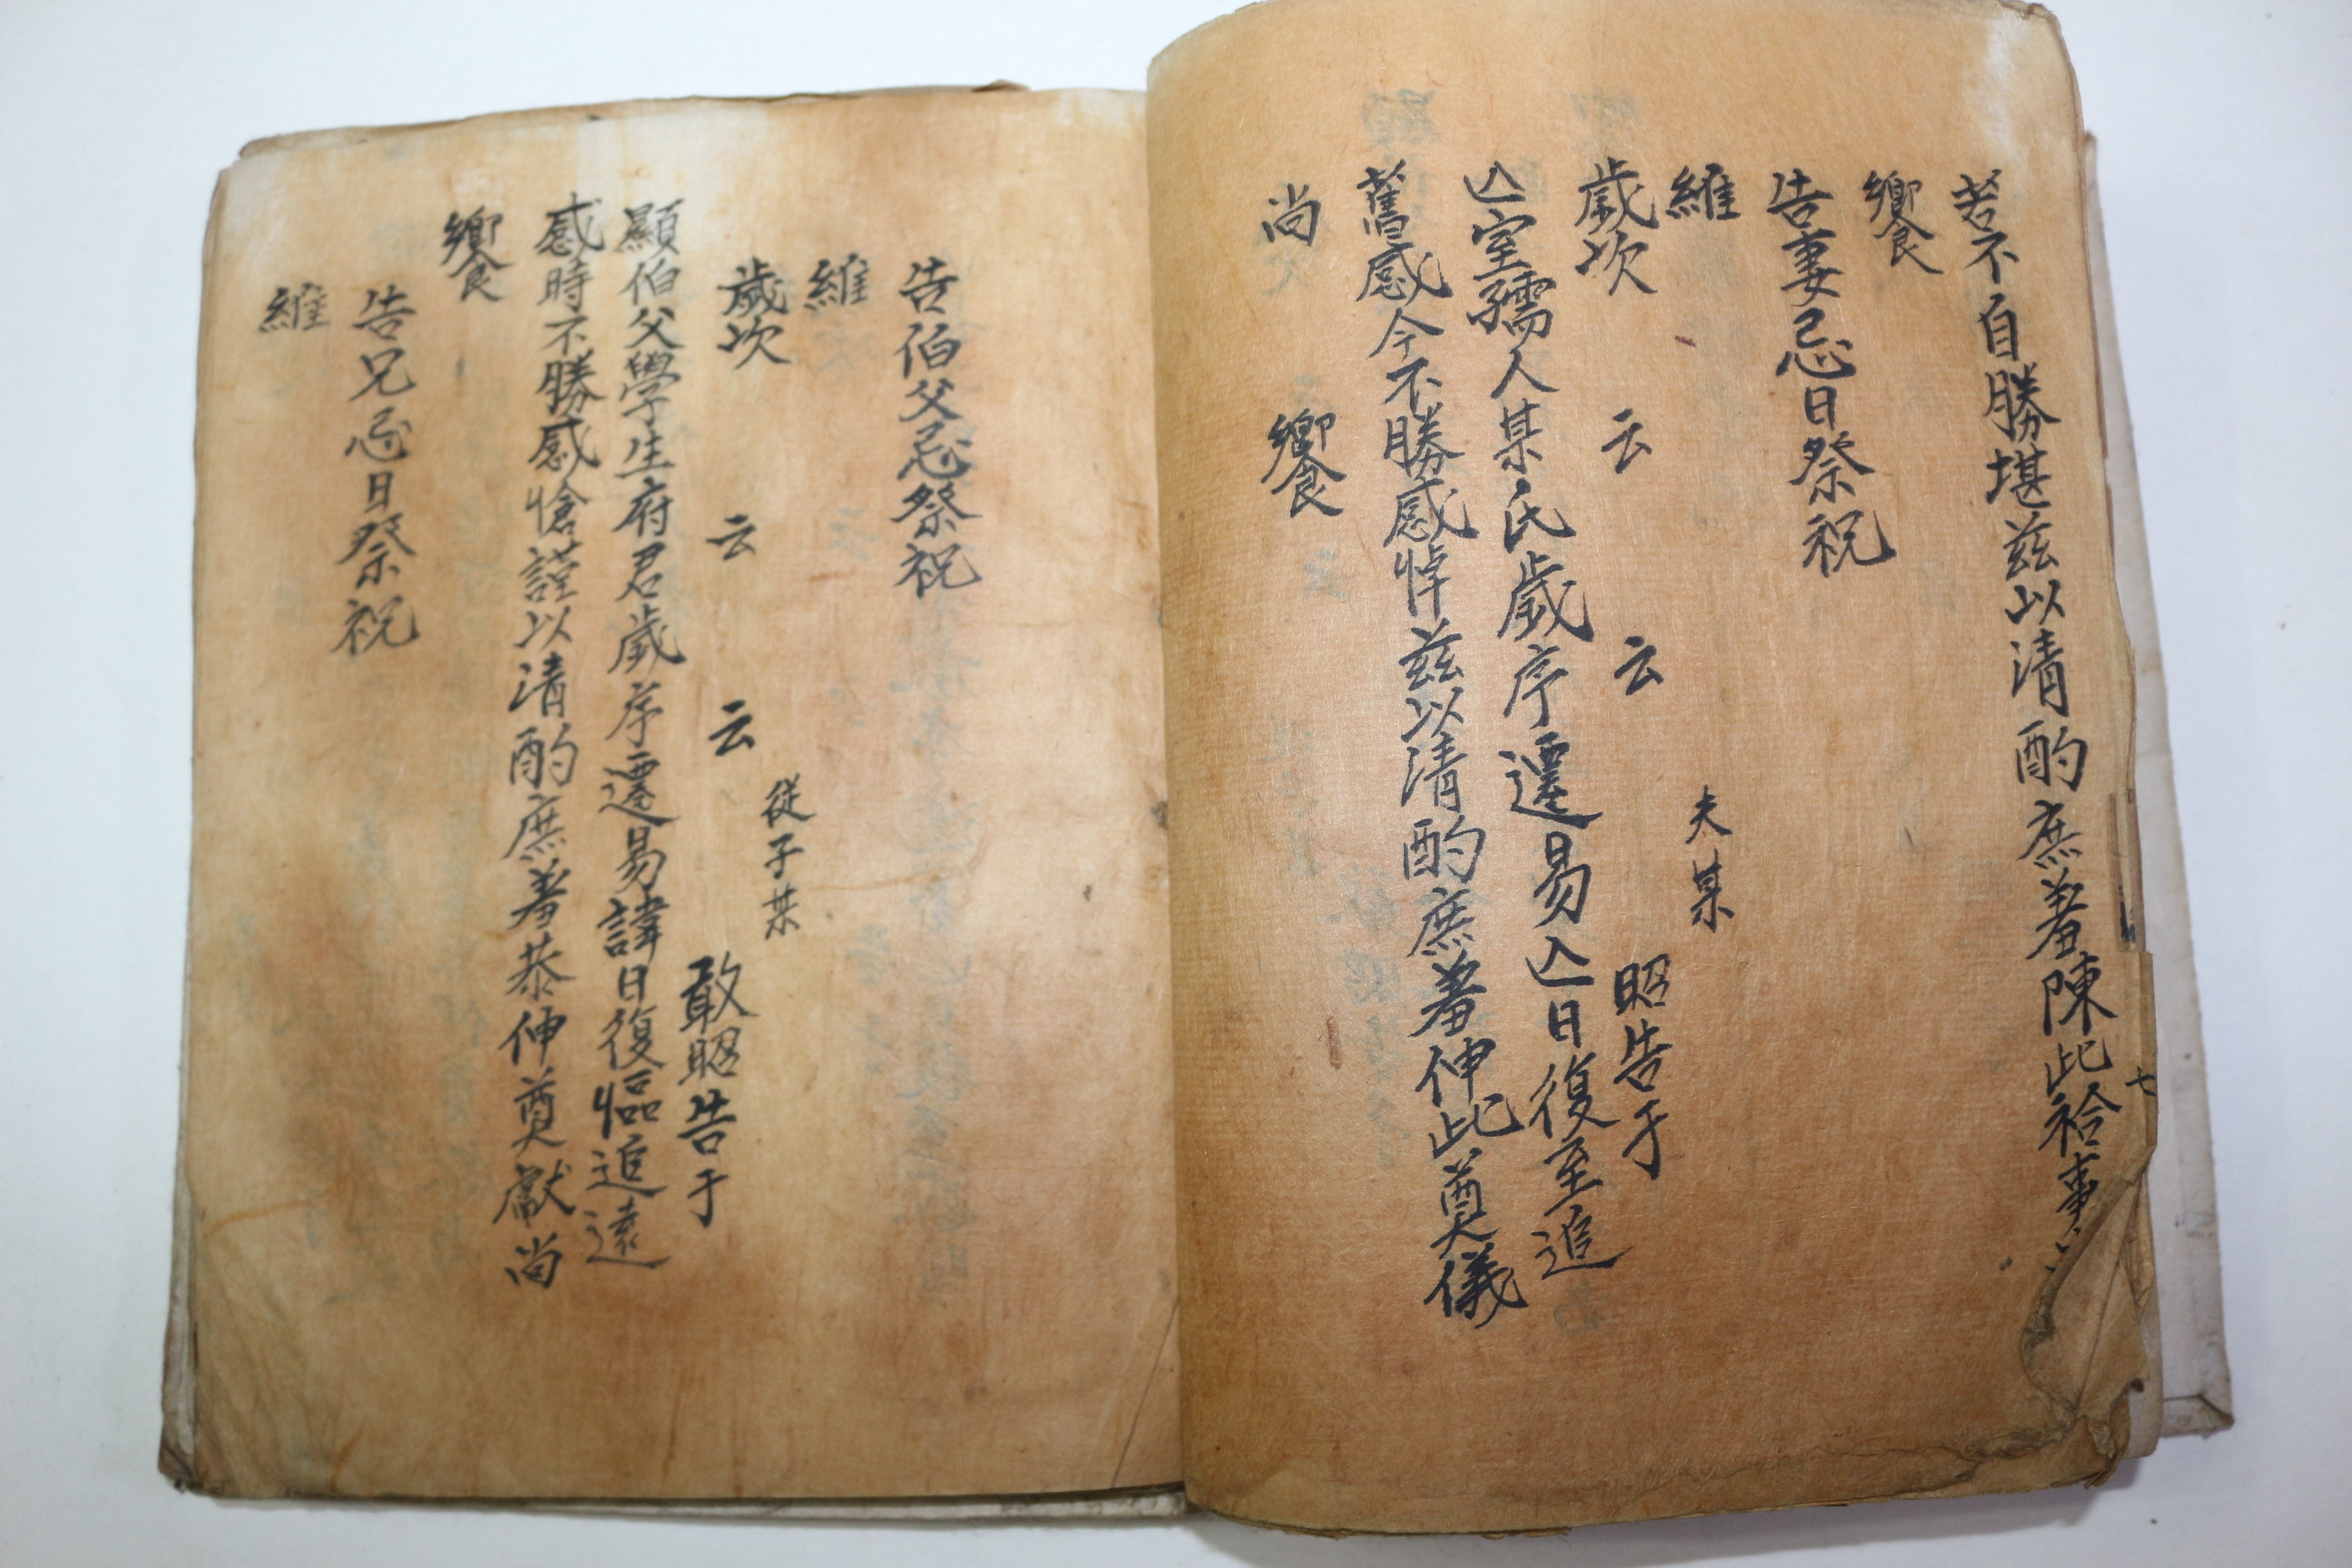 若不自勝堪茲以清酌庶羞陳此祫事
饗
告妻忌日祭祝
維
歲次 云 云
夫某
昭告于
亾室孺人某氏歲序遷易亾日復至追
舊感今不勝感悼茲以清酌庶羞伸此奠儀
尚 饗
七
告伯父忌祭祝
維
歲次 云 云
從子某
敢昭告于
顯伯父學生府君歲序遷易諱日復臨追遠
感時不勝感愴謹以清酌庶羞恭伸奠獻尚
饗
告兄忌日祭祝
維